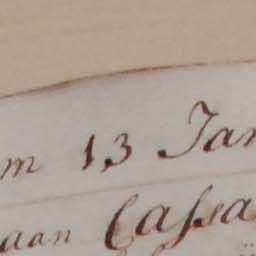 m 13 Jan
aan Cassa